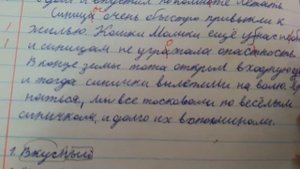 и впустил полетать
Синицы очень быстро привыкли к
жилью. Кошки Машки ещё у нас не б
и синицам не угрожала опасность.
В конце зимы папа открыл входную д
и тогда синички вылетели на волю,
мы все тосковали по весёлым
синичкам, и долго их вспоминали.
1. Вкусный